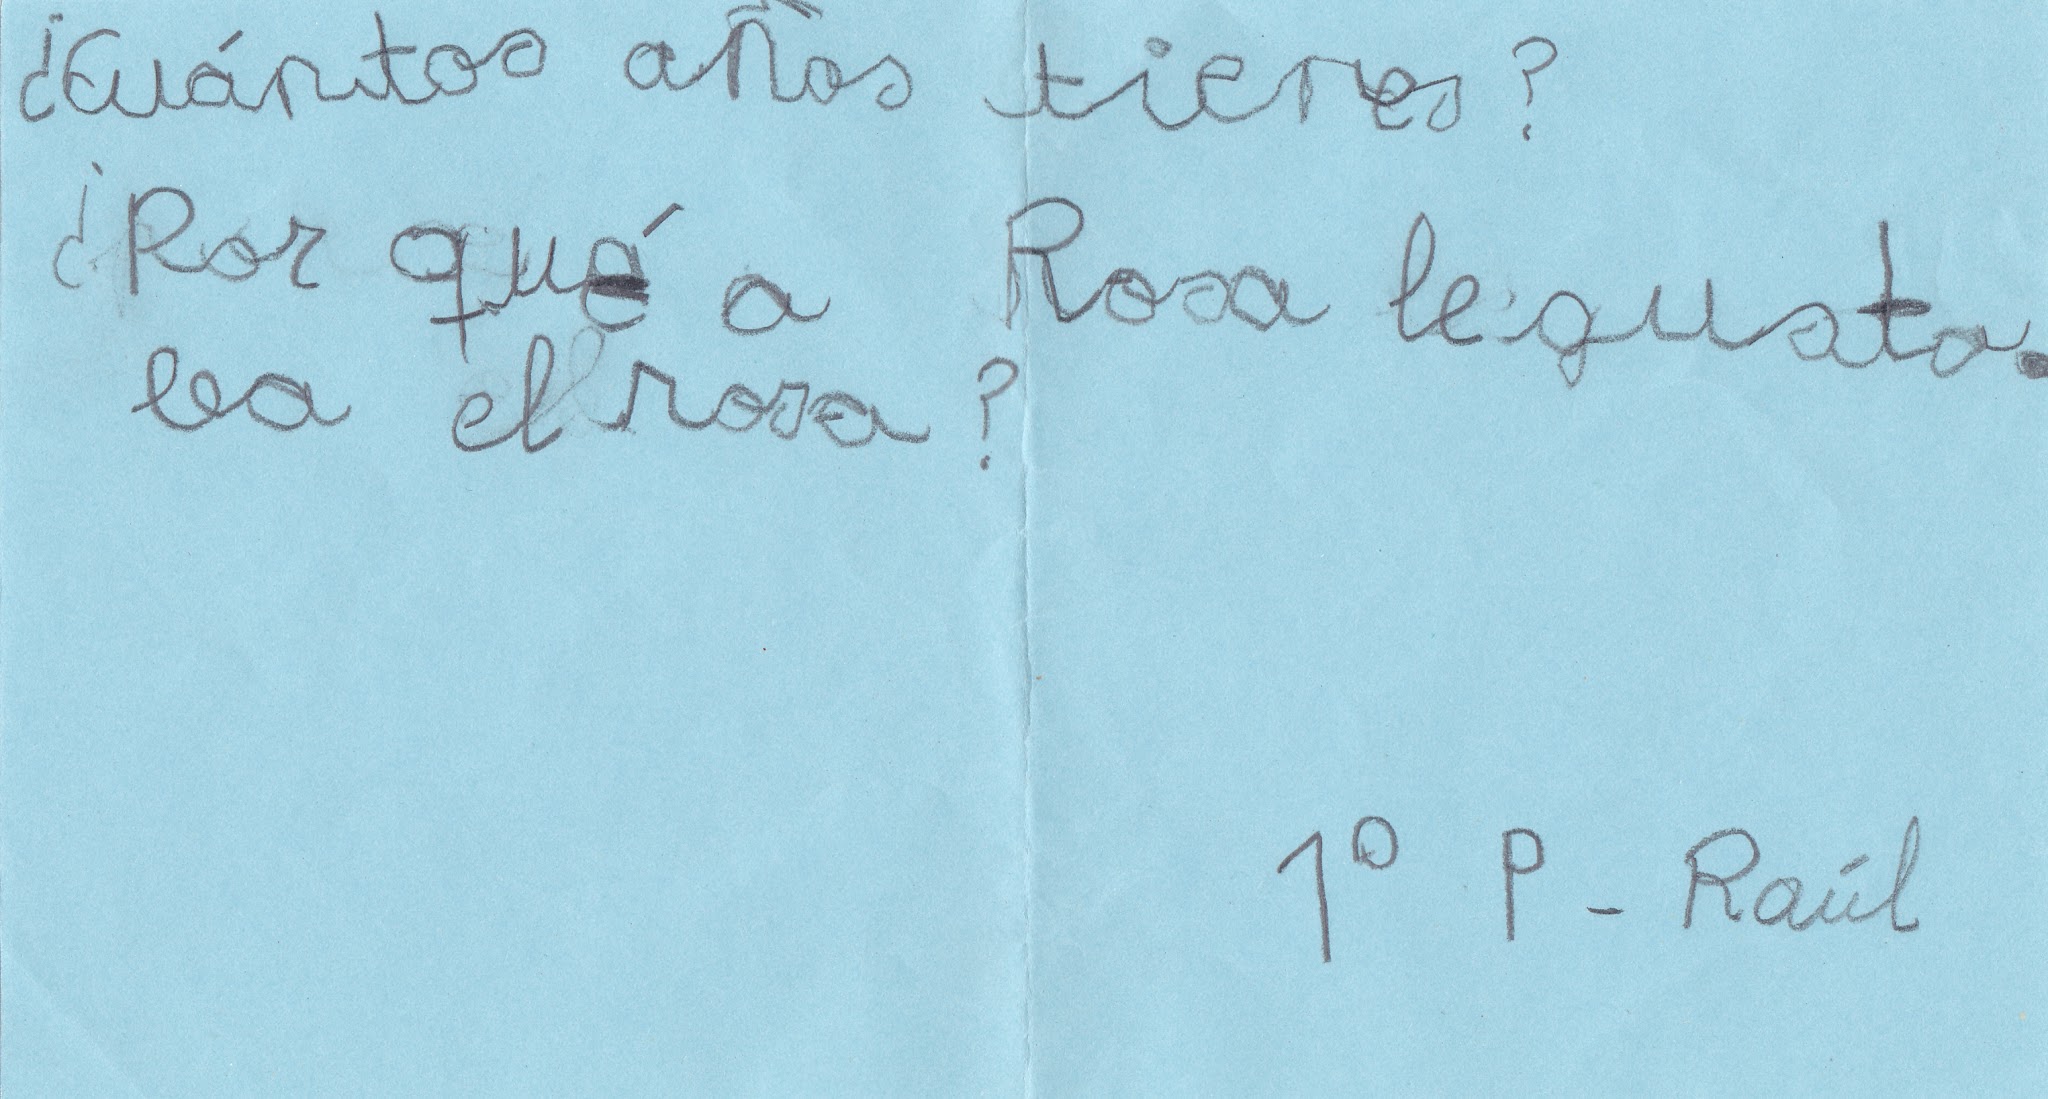 ¿Cuántos años tieres?
¿Por qué a Rosa le gusta.
ba el rosa?
1º P - Raúl